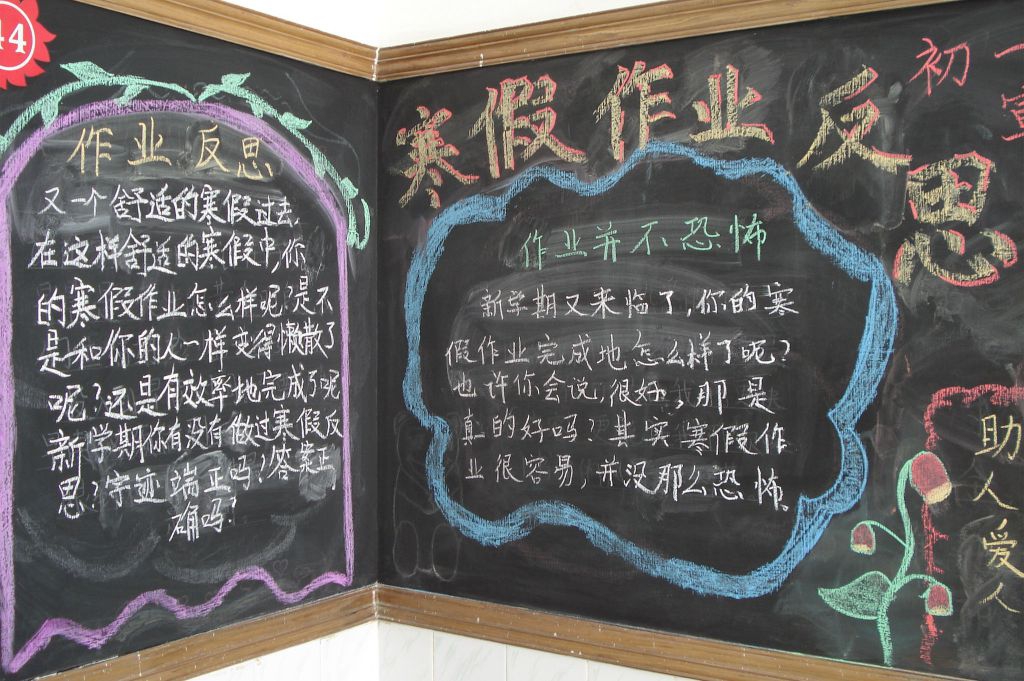 44
作业反思
又一个舒适的寒假过去,
在这样舒适的寒假中,你
的寒假作业怎么样呢?是不
是和你的人一样变得懒散了
呢?还是有效率地完成了呢
新学期你有没有做过寒假反
思?字迹端正吗?答案正
确吗?
寒假作业反思
作业并不恐怖
新学期又来临了,你的寒
假作业完成地怎么样了呢?
也许你会说,很好,那是
真的好吗?其实寒假作
业很容易,并没那么恐怖。
初一
宣
助人爱人